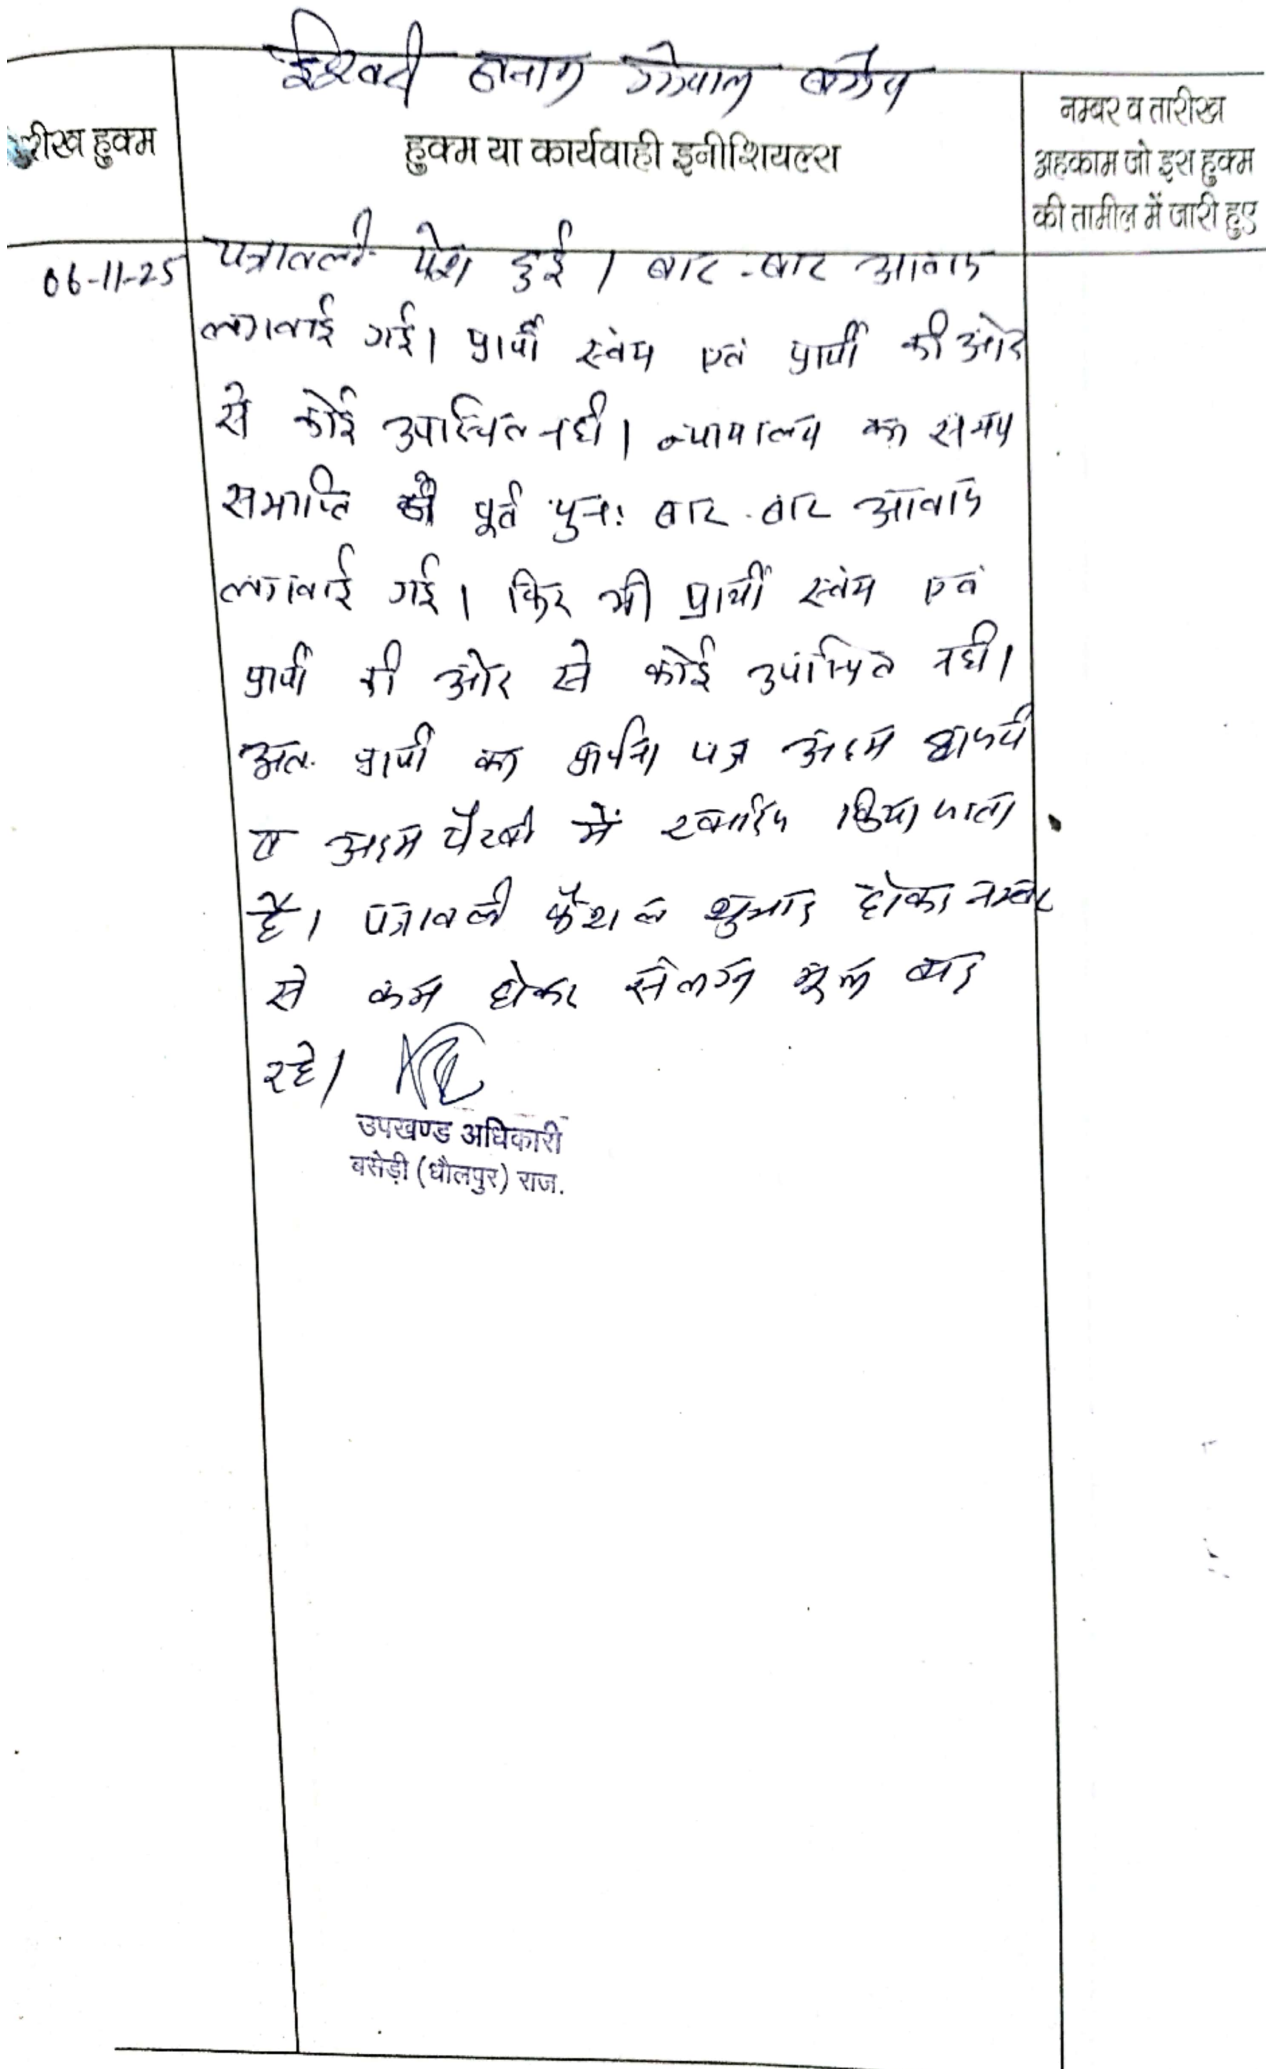 ईश्वरी बनाम गोपाल
तारीख हुक्म
हुक्म या कार्यवाही इनीशियल्स
नम्बर व तारीख
अहकाम जो इस हुक्म
की तामील में जारी हुए
06-11-25
पत्रावली पेश हुई। बार-बार आवाज
लगवाई गई। प्रार्थी स्वंय एवं प्रार्थी की ओर
से कोई उपस्थित नही। न्यायालय का समय
समाप्ति की पूर्व पुनः बार-बार आवाज
लगवाई गई। फिर भी प्रार्थी स्वंय एवं
प्रार्थी की ओर से कोई उपस्थित नही।
अतः प्रार्थी का प्रार्थना पत्र अदम हाजरी
व अदम पैरवी में खारिज किया जाता
है। पत्रावली फैशल शुमार होकर नम्बर
से कम होकर संलग्न मूल वाद
रहे।
उपखण्ड अधिकारी
बसेड़ी (धौलपुर) राज.